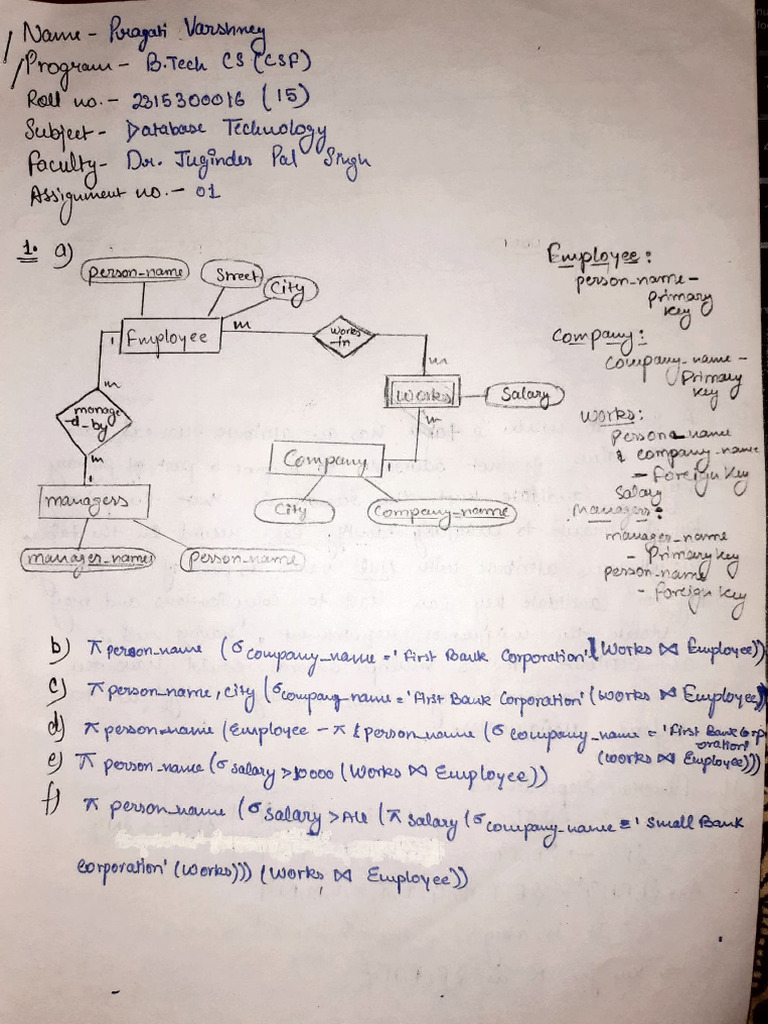 Name - Pragati Varshney
Program - B.Tech CS (CSF)
Roll no. - 2315300016 (15)
Subject - Database Technology
Faculty - Dr. Juginder Pal Singh
Assignment no. - 01
1. a)
person_name
Street
City
Employee
m
works
-in
1
m
m
manage
-d_by
Works
Salary
m
m
Company
1
1
managers
City
Company_name
manager_name
person_name
Employee:
person_name -
primary
key
Company:
company_name -
Primary
key
Works:
person_name
& company_name
- Foreign key
Salary
Managers:
manager_name
- Primary key
person_name
- foreign key
b) π person_name (σ company_name = 'First Bank Corporation' (Works ⋈ Employee))
c) π person_name, city (σ company_name = 'First Bank Corporation' (works ⋈ Employee))
d) π person_name (Employee - π person_name (σ company_name = 'First Bank Corp
oration'
(works ⋈ Employee)))
e) π person_name (σ salary > 10000 (Works ⋈ Employee))
f) π person_name (σ salary > All (π salary (σ company_name = 'Small Bank
Corporation' (works))) (Works ⋈ Employee))